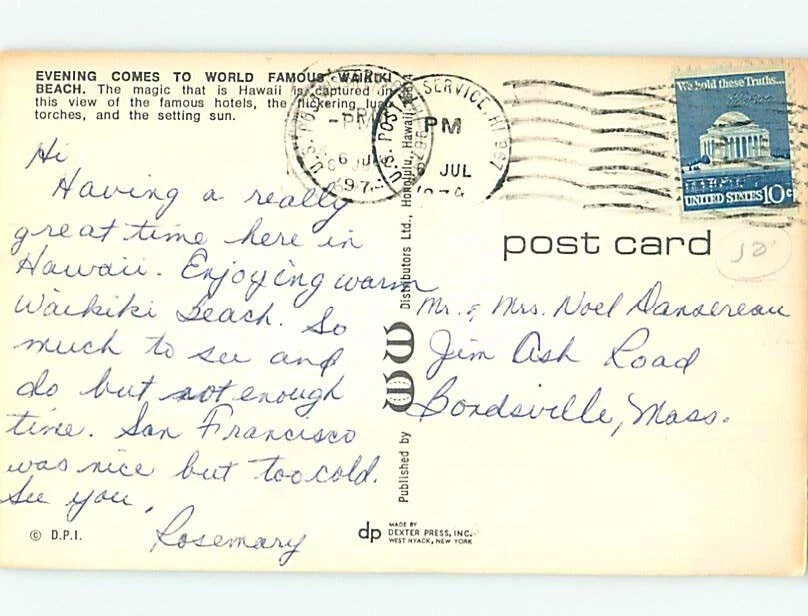 EVENING COMES TO WORLD FAMOUS WAIKIKI
BEACH. The magic that is Hawaii is captured in
this view of the famous hotels, the flickering luau
torches, and the setting sun.
Hi
Having a really
great time here in
Hawaii. Enjoying warm
Waikiki Beach. So
much to see and
do but not enough
time. San Francisco
was nice but too cold.
See you,
Rosemary
© D.P.I.
Published by
Distributors Ltd., Honolulu, Hawaii
dp
MADE BY
DEXTER PRESS, INC.
WEST NYACK, NEW YORK
U.S. POSTAL SERVICE, HI 967
PM
6 JUL
We hold these Truths...
UNITED STATES 10c
post card
Mr. & Mrs. Noel Dansereau
Jim Ash Road
Bondsville, Mass.